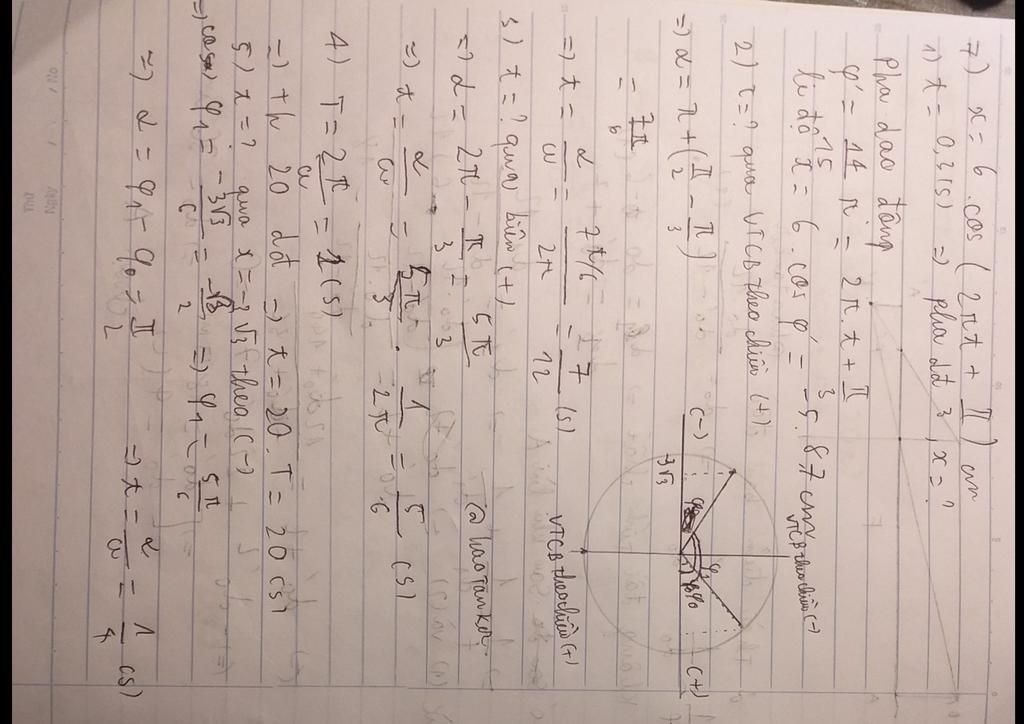 7) x = 6 . cos ( 2πt + π/3 ) cm
1) t = 0,3 (s) => pha dđ, x = ?
pha dao động
φ' = 14/15 π = 2π.t + π/3
li độ x = 6 . cos φ' = -5.87 cm
2) t = ? qua VTCB theo chiều (+).
=> α = π + ( π/2 - π/3 )
= 7π/6
=> t = α/ω = 7π/6 / 2π = 7/12 (s)
3) t = ? qua biên (+).
=> α = 2π - π/3 = 5π/3
=> t = α/ω = 5π/3 . 1/2π = 5/6 (s)
4) T = 2π/ω = 1 (s)
=) th 20 dđ => t = 20. T = 20 (s)
5) t = ? qua x = -3√3 theo (-)
=> cos φ1 = -3√3/6 = -√3/2 => φ1 = 5π/6
=> α = φ1 - φ0 = π/2 => t = α/ω = 1/4 (s)
VTCB theo chiều (-)
(-)
(+)
3√3
φ1
VTCB theo chiều (+)
@haotankor
Thứ
Ngày
No